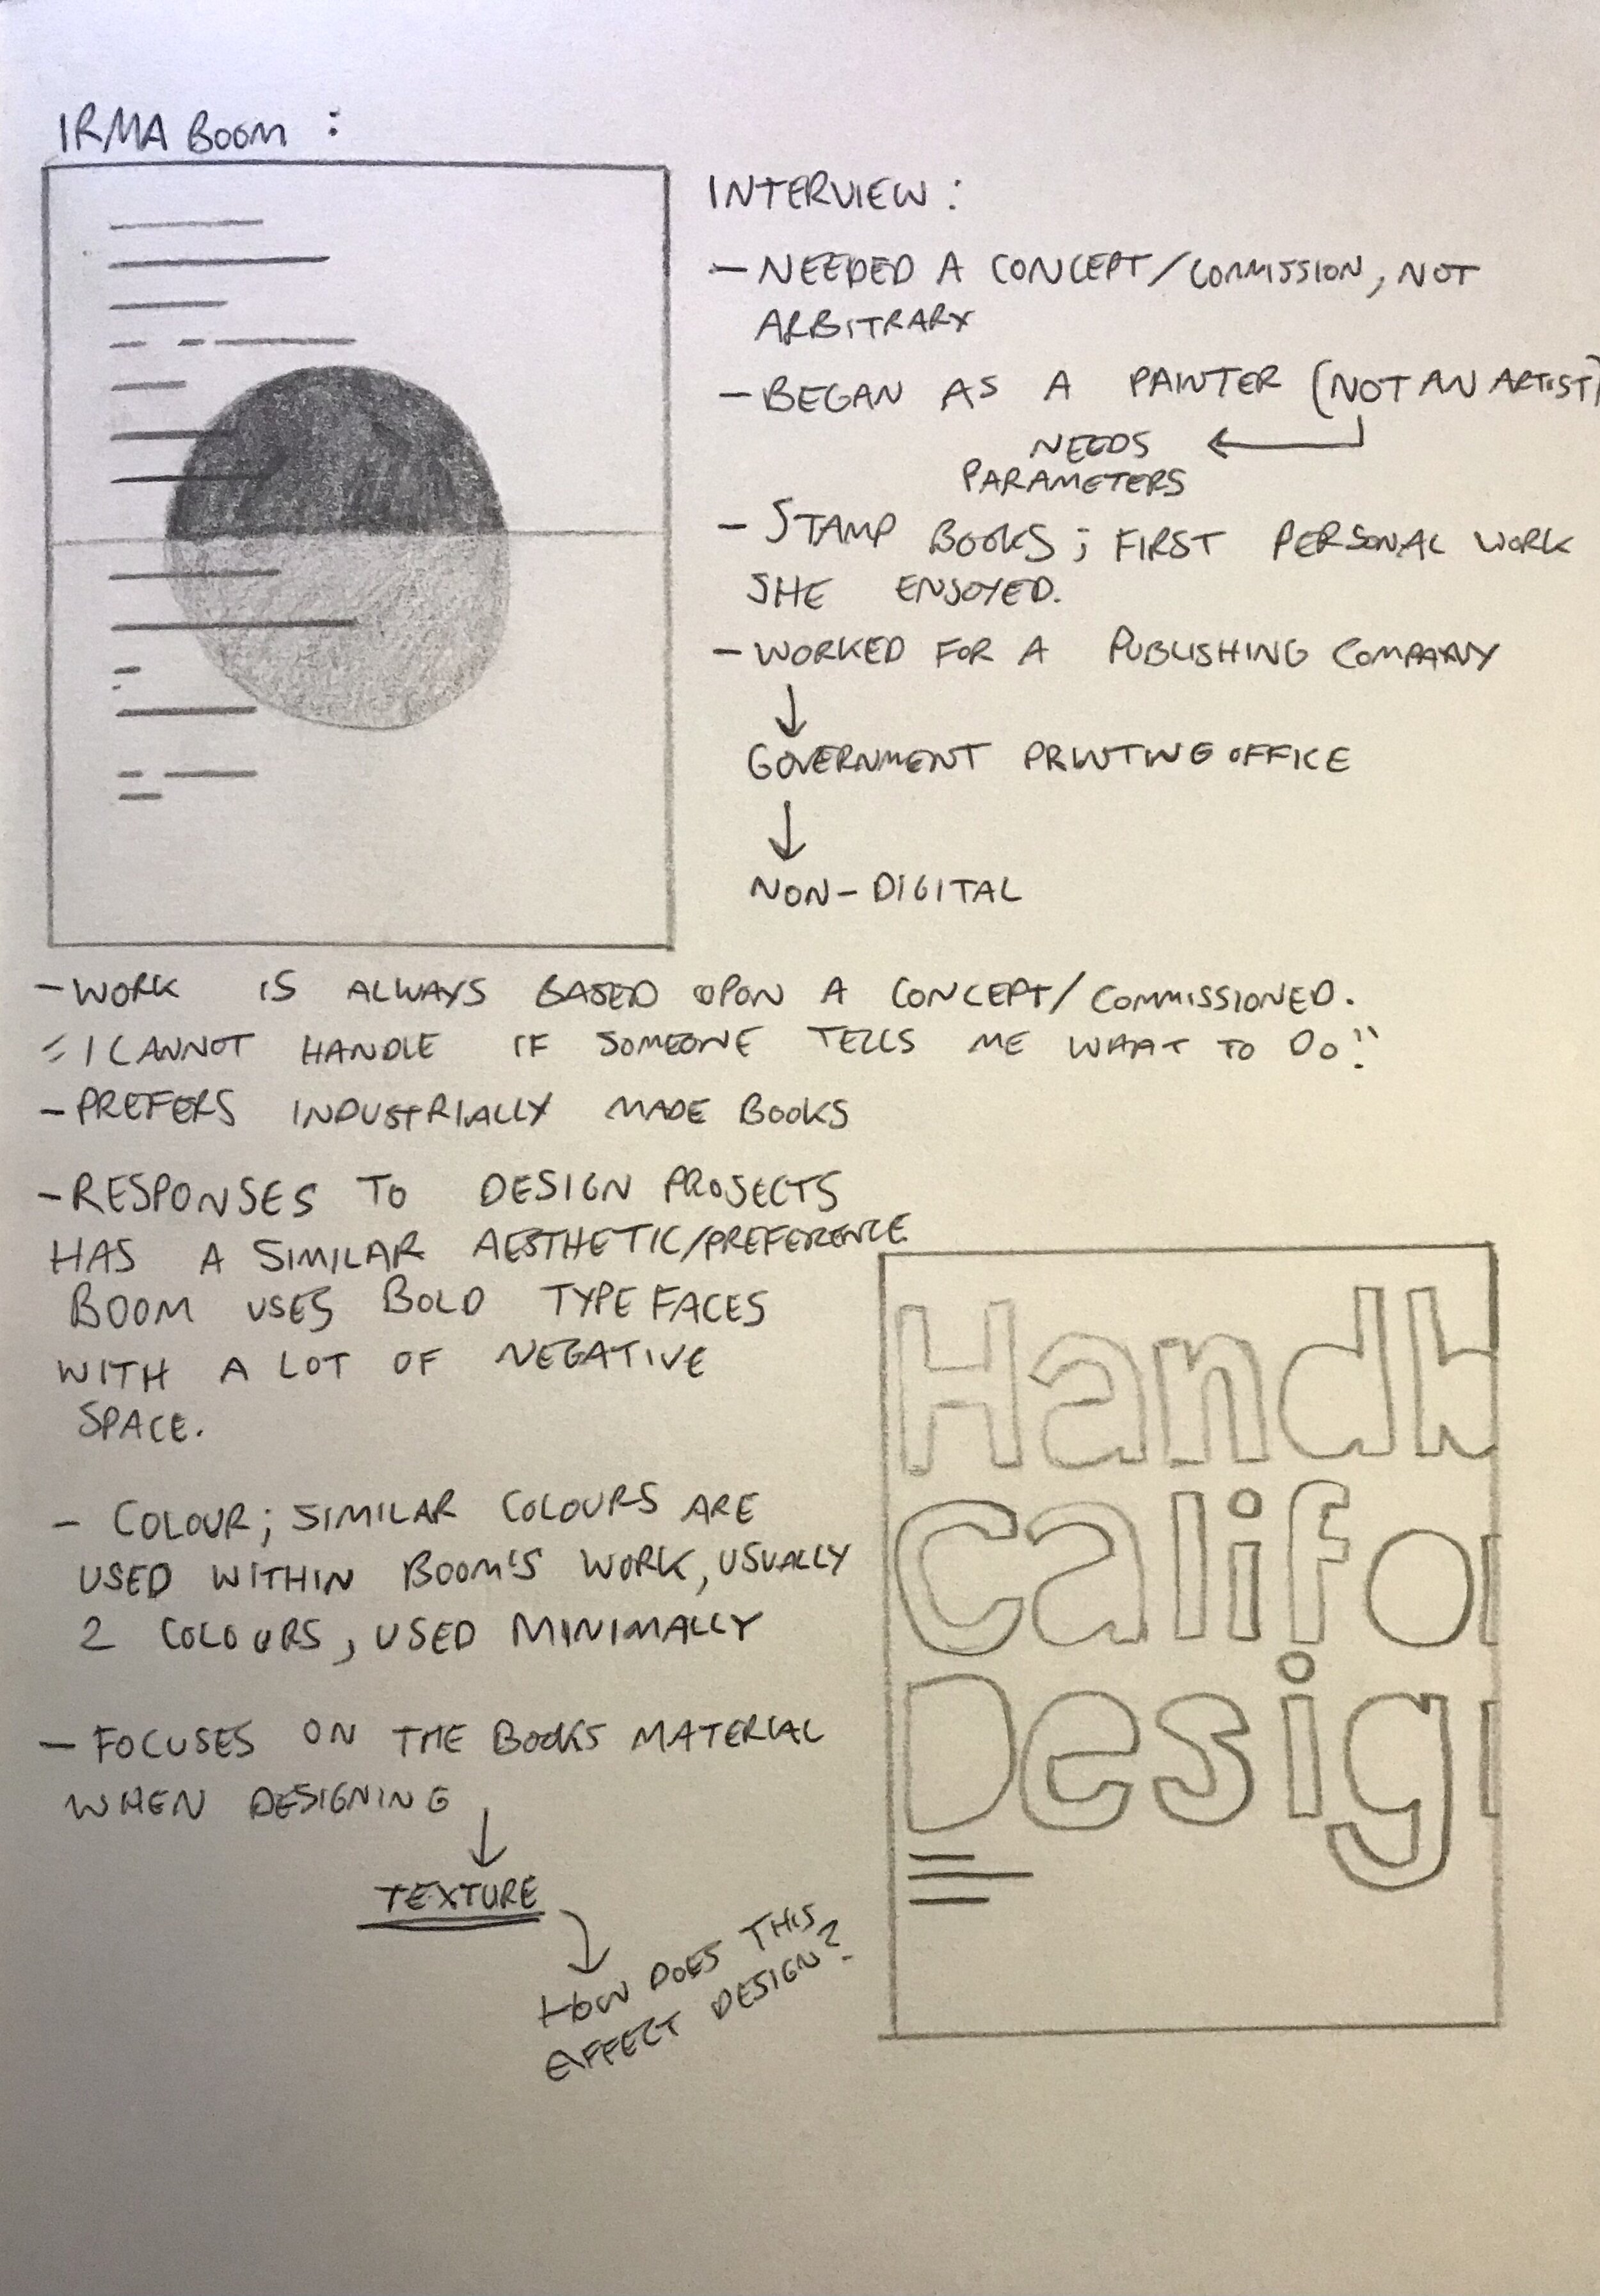 IRMA BOOM :
INTERVIEW :
– NEEDED A CONCEPT/COMMISSION, NOT
ARBITRARY
– BEGAN AS A PAINTER (NOT AN ARTIST)
NEEDS
PARAMETERS
– STAMP BOOKS ; FIRST PERSONAL WORK
SHE ENJOYED.
– WORKED FOR A PUBLISHING COMPANY
GOVERNMENT PRINTING OFFICE
NON-DIGITAL
– WORK IS ALWAYS BASED UPON A CONCEPT/COMMISSIONED.
"I CANNOT HANDLE IF SOMEONE TELLS ME WHAT TO DO."
– PREFERS INDUSTRIALLY MADE BOOKS
– RESPONSES TO DESIGN PROJECTS
HAS A SIMILAR AESTHETIC/PREFERENCE
BOOM USES BOLD TYPEFACES
WITH A LOT OF NEGATIVE
SPACE.
– COLOUR ; SIMILAR COLOURS ARE
USED WITHIN BOOM'S WORK, USUALLY
2 COLOURS, USED MINIMALLY
– FOCUSES ON THE BOOKS MATERIAL
WHEN DESIGNING
TEXTURE
HOW DOES THIS
EFFECT DESIGN?
Handb
Califor
Desig